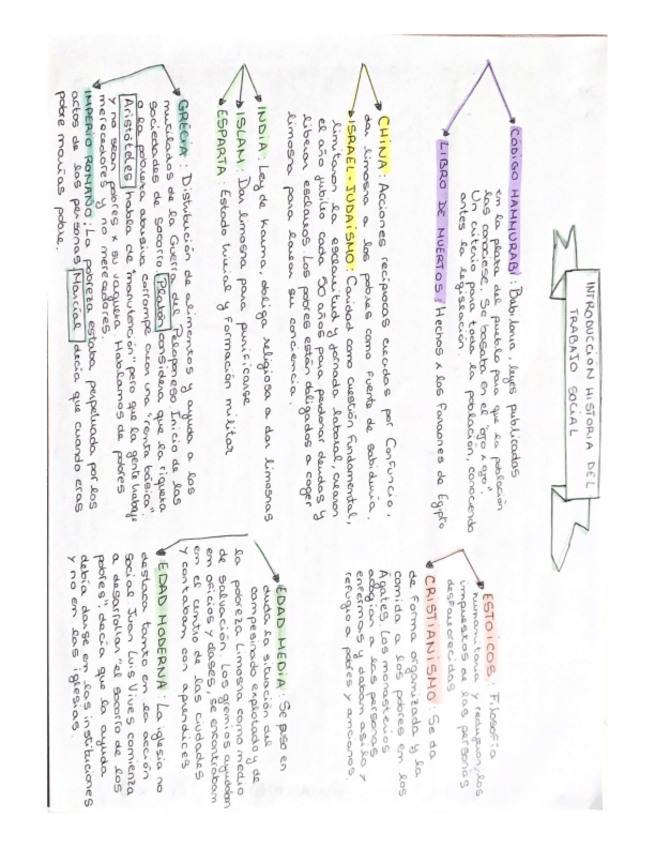 INTRODUCCIÓN HISTORIA DEL
TRABAJO SOCIAL
CÓDIGO HAMMURABI: Babilonia, leyes publicadas
en la plaza del pueblo para que la población
las conociese. Se basaba en el "ojo x ojo".
Un criterio para toda la población, conociendo
antes la legislación.
LIBRO DE MUERTOS: Hechos x los faraones de Egipto
CHINA: Acciones recíprocas creadas por Confuncio,
dar limosna a los pobres como fuente de sabiduría.
ISRAEL-JUDAISMO: Caridad como cuestión fundamental,
limitaron la esclavitud y jornada laboral, crearon
el año jubilo cada 50 años para perdonar deudas y
liberar esclavos. Los pobres están obligados a coger
limosna para lavar su conciencia.
INDIA: Ley de Karma, obliga religiosa a dar limosnas
ISLAM: Dar limosna para purificarse
ESPARTA: Estado social y Formación militar
GRECIA: Distribución de alimentos y ayuda a los
mutilados de la Guerra del Peloponeso. Inicio de las
sociedades de socorro. Platón considera que la riqueza
o la pobreza abusiva corrompe, crean una "renta básica".
Aristóteles habla de "manutención" pero que la gente trabaje
y no sean pobres x su vaguera. Hablamos de pobres
merecedores y no merecedores.
IMPERIO ROMANO: La pobreza estaba perpetuada por los
actos de las personas. Marcial decía que cuando eras
pobre morías pobre.
ESTOICOS: Filosofía
humanitaria y redujeron los
impuestos de las personas
desfavorecidas
CRISTIANISMO: Se da
de forma organizada y la
comida a los pobres en los
Ágates. Los monasterios
acogían a las personas
enfermas y daban asilo y
refugio a pobres y ancianos.
EDAD MEDIA: Se puso en
duda la situación del
campesinado explotado y de
la pobreza. Limosna como medio
de salvación. Los gremios ayudaban
en oficios y clases, se encontraban
en el centro de las ciudades
y contaban con aprendices
EDAD MODERNA: La iglesia no
destaca tanto en la acción
social. Juan Luis Vives comienza
a desarrollar "el socorro de los
pobres", decía que la ayuda
debía darse en las instituciones
y no en las iglesias.